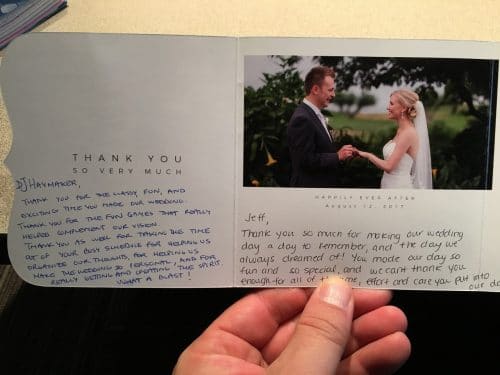 THANK YOU
SO VERY MUCH
DJ HAYMAKER,
THANK YOU FOR THE CLASSY, FUN, AND
EXCITING TIME YOU MADE OUR WEDDING.
THANK YOU FOR THE FUN GAMES THAT REALLY
HELPED COMPLEMENT OUR VISION.
THANK YOU AS WELL FOR TAKING THE TIME
OUT OF YOUR BUSY SCHEDULE FOR HELPING US
ORGANIZE OUR THOUGHTS, FOR HELPING US
MAKE THE WEDDING SO PERSONAL, AND FOR
REALLY GETTING AND THE SPIRIT.
WHAT A BLAST!
HAPPILY EVER AFTER
August 12, 2017
Jeff,
Thank you so much for making our wedding
day a day to remember, and the day we
always dreamed of! You made our day so
fun and so special, and we can't thank you
enough for all of the time, effort and care you put into
our da